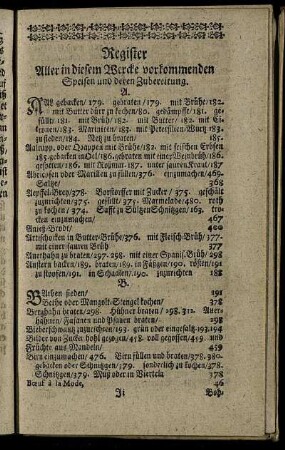 Register
Aller in diesem Wercke vorkommenden
Speisen und deren Zubereitung.
A.
AAl gebacken/179. gebraten/179. mit Brühe/182.
mit Butter dürr zu kochen/80. gedämpffte/181. ge-
füllt/181. mit Brüh/182. mit Butter/182. mit Ci-
tronen/183. Mariniren/183. mit Petersilien-Wurtz 183.
zu sieden/184. Netz zu braten 185.
mit Brühe/182. mit frischen Erbsen
185. gebacken in Oel/186. gebraten mit einer Zwiebelnbrüh/186.
Abricosen oder Marillen zu füllen/376. einzumachen/469.
Salße/ 368
Aepffel-Brey/378. Borstorffer mit Zucker/375. geschält
zuzurichten/375. gefüllt/375. Marmelade/480. roth
zu kochen/374. Safft zu Hültzen Schnitzgen/163. tro-
cken einzumachen/ 467
Anieß-Brodt/ 400
Artischocken in Butter-Brühe/376. mit Fleisch-Brüh/377.
mit einer sauren Brüh 377
Auerhahn zu braten/297. 298. mit einer Spanis. Brüh/298
Austern backen/189. braten/189. in Fäßgen/190. rösten/191
zu stopffen/191. in Schalen/190. zuzurichten 188
B.
BLeyhen sieden/ 191
Bethe oder Mangolt-Stengel kochen/ 378
Berghahn braten/298. Hühner braten/298. 312. Auer-
hähnen/Fasanen und Pfauen braten/ 298
Bieberschwantz zuzurichten/193. grün oder eingesaltz. 193. 194
Bilder von Zucker hohl gezogen/458. voll gegossen/459. und
Früchte aus Mandeln/ 459
Birn einzumachen/476. Birn füllen und braten/378. 380.
gebacken oder Schnitzgen/379. sonderlich zu kochen/378.
Schnitzgen/379. Muß oder in Vierteln 378
Beeuf à la Mode, 46
Ii Boh-